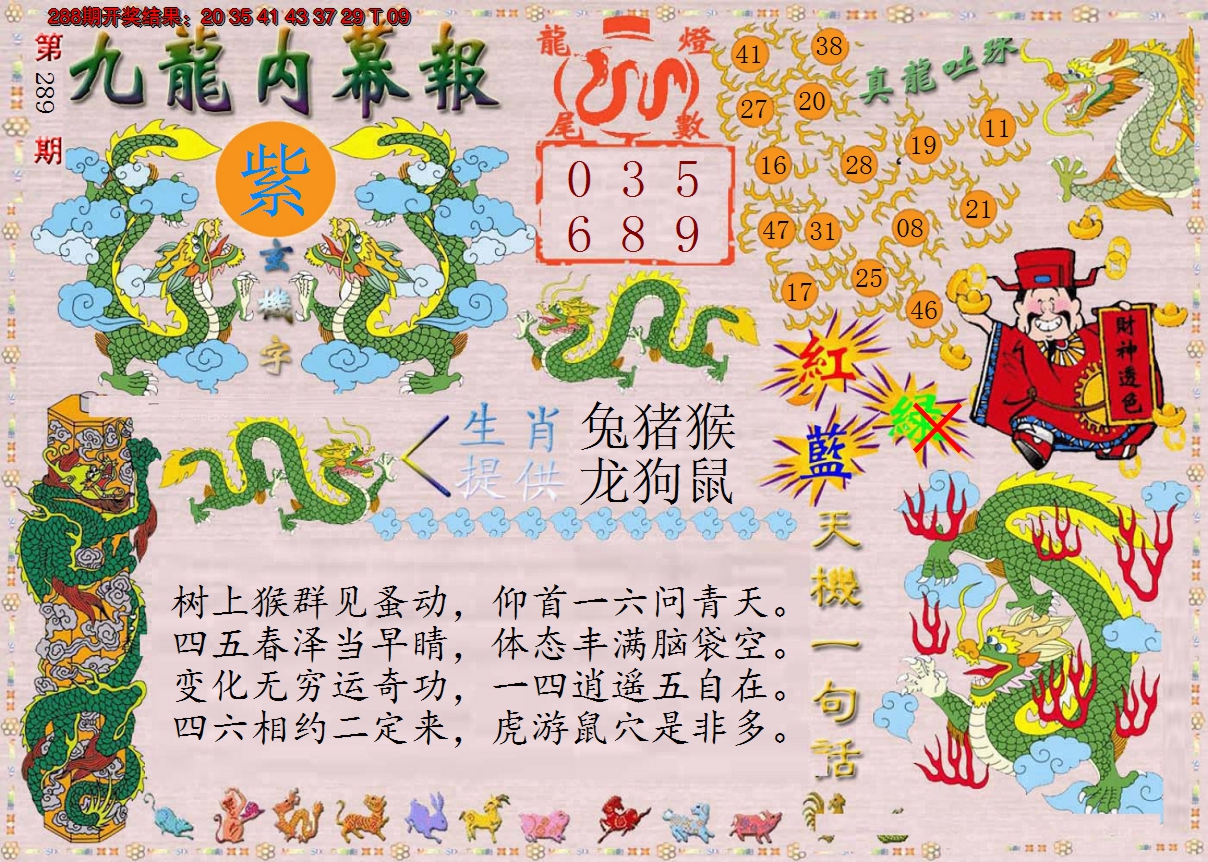 288期开奖结果：20 35 41 43 37 29 T 09
第289期
九龍内幕報
紫
玄機字
龍燈
尾數
0 3 5
6 8 9
真龍吐珠
41
38
27
20
19
11
16
28
47
31
08
21
17
25
46
財神透色
紅
綠
藍
生肖 兔猪猴
提供 龙狗鼠
天機一句话
树上猴群见蚤动，仰首一六问青天。
四五春泽当早晴，体态丰满脑袋空。
变化无穷运奇功，一四逍遥五自在。
四六相约二定来，虎游鼠穴是非多。